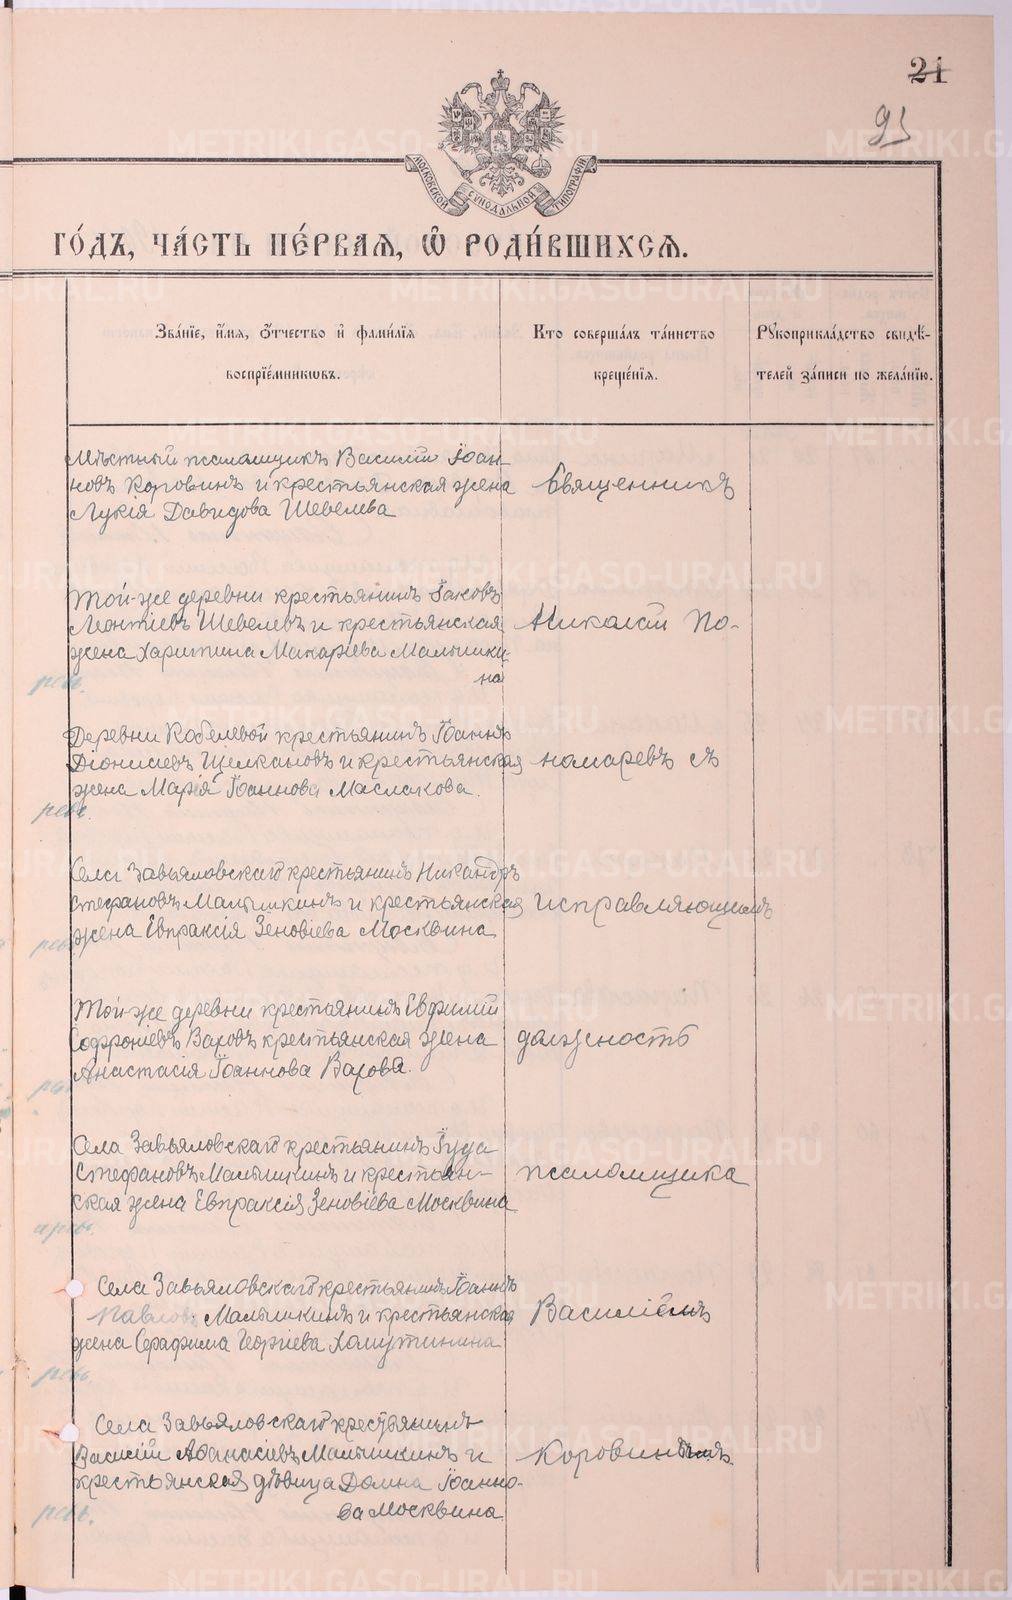 21
95
МОСКОВСКОЙ СѴНОДАЛЬНОЙ ТИПОГРАФІИ
ГО́ДЪ, ЧА́СТЬ ПЕ́РВАЯ, Ѽ РОДИ́ВШИХСЯ.
Зва́нїе, и҆́мя, ѻ҆́тчество и҆ фами́лїя
воспрїе́мникѡвъ.
Кто соверша́лъ та́инство
креще́нїя.
Рꙋкоприкла́дство свидѣ́-
телей за́писи по жела́нїю.
Мѣстный псаломщикъ Василій Іоан-
новъ Коровинъ и крестьянская жена
Лукія Давидова Шевелева
Священникъ
Той-же деревни крестьянинъ Іаковъ
Леонтіевъ Шевелевъ и крестьянская
жена Харитина Макаріева Малышки-
на
Николай По-
Деревни Кобелевой крестьянинъ Іоаннъ
Діонисіевъ Щелкановъ и крестьянская
жена Марія Іоаннова Маслакова.
номаревъ съ
Села Завьяловскаго крестьянинъ Никандръ
Стефановъ Малышкинъ и крестьянская
жена Евпраксія Зеновіева Москвина
исправляющимъ
Той-же деревни крестьянинъ Евфимій
Софроніевъ Варовъ крестьянская жена
Анастасія Іоаннова Варова.
должность
Села Завьяловскаго крестьянинъ Іуда
Стефановъ Малышкинъ и крестьян-
ская жена Евпраксія Зеновіева Москвина
псаломщика
Села Завьяловскаго крестьянинъ Іоаннъ
Павловъ Малышкинъ и крестьянская
жена Серафима Георгіева Хомутинина
Василіемъ
Села Завьяловскаго крестьянинъ
Василій Аѳанасіевъ Малышкинъ и
крестьянская дѣвица Домна Іоанно-
ва Москвина
Коровинымъ.
METRIKI.GASO-URAL.RU